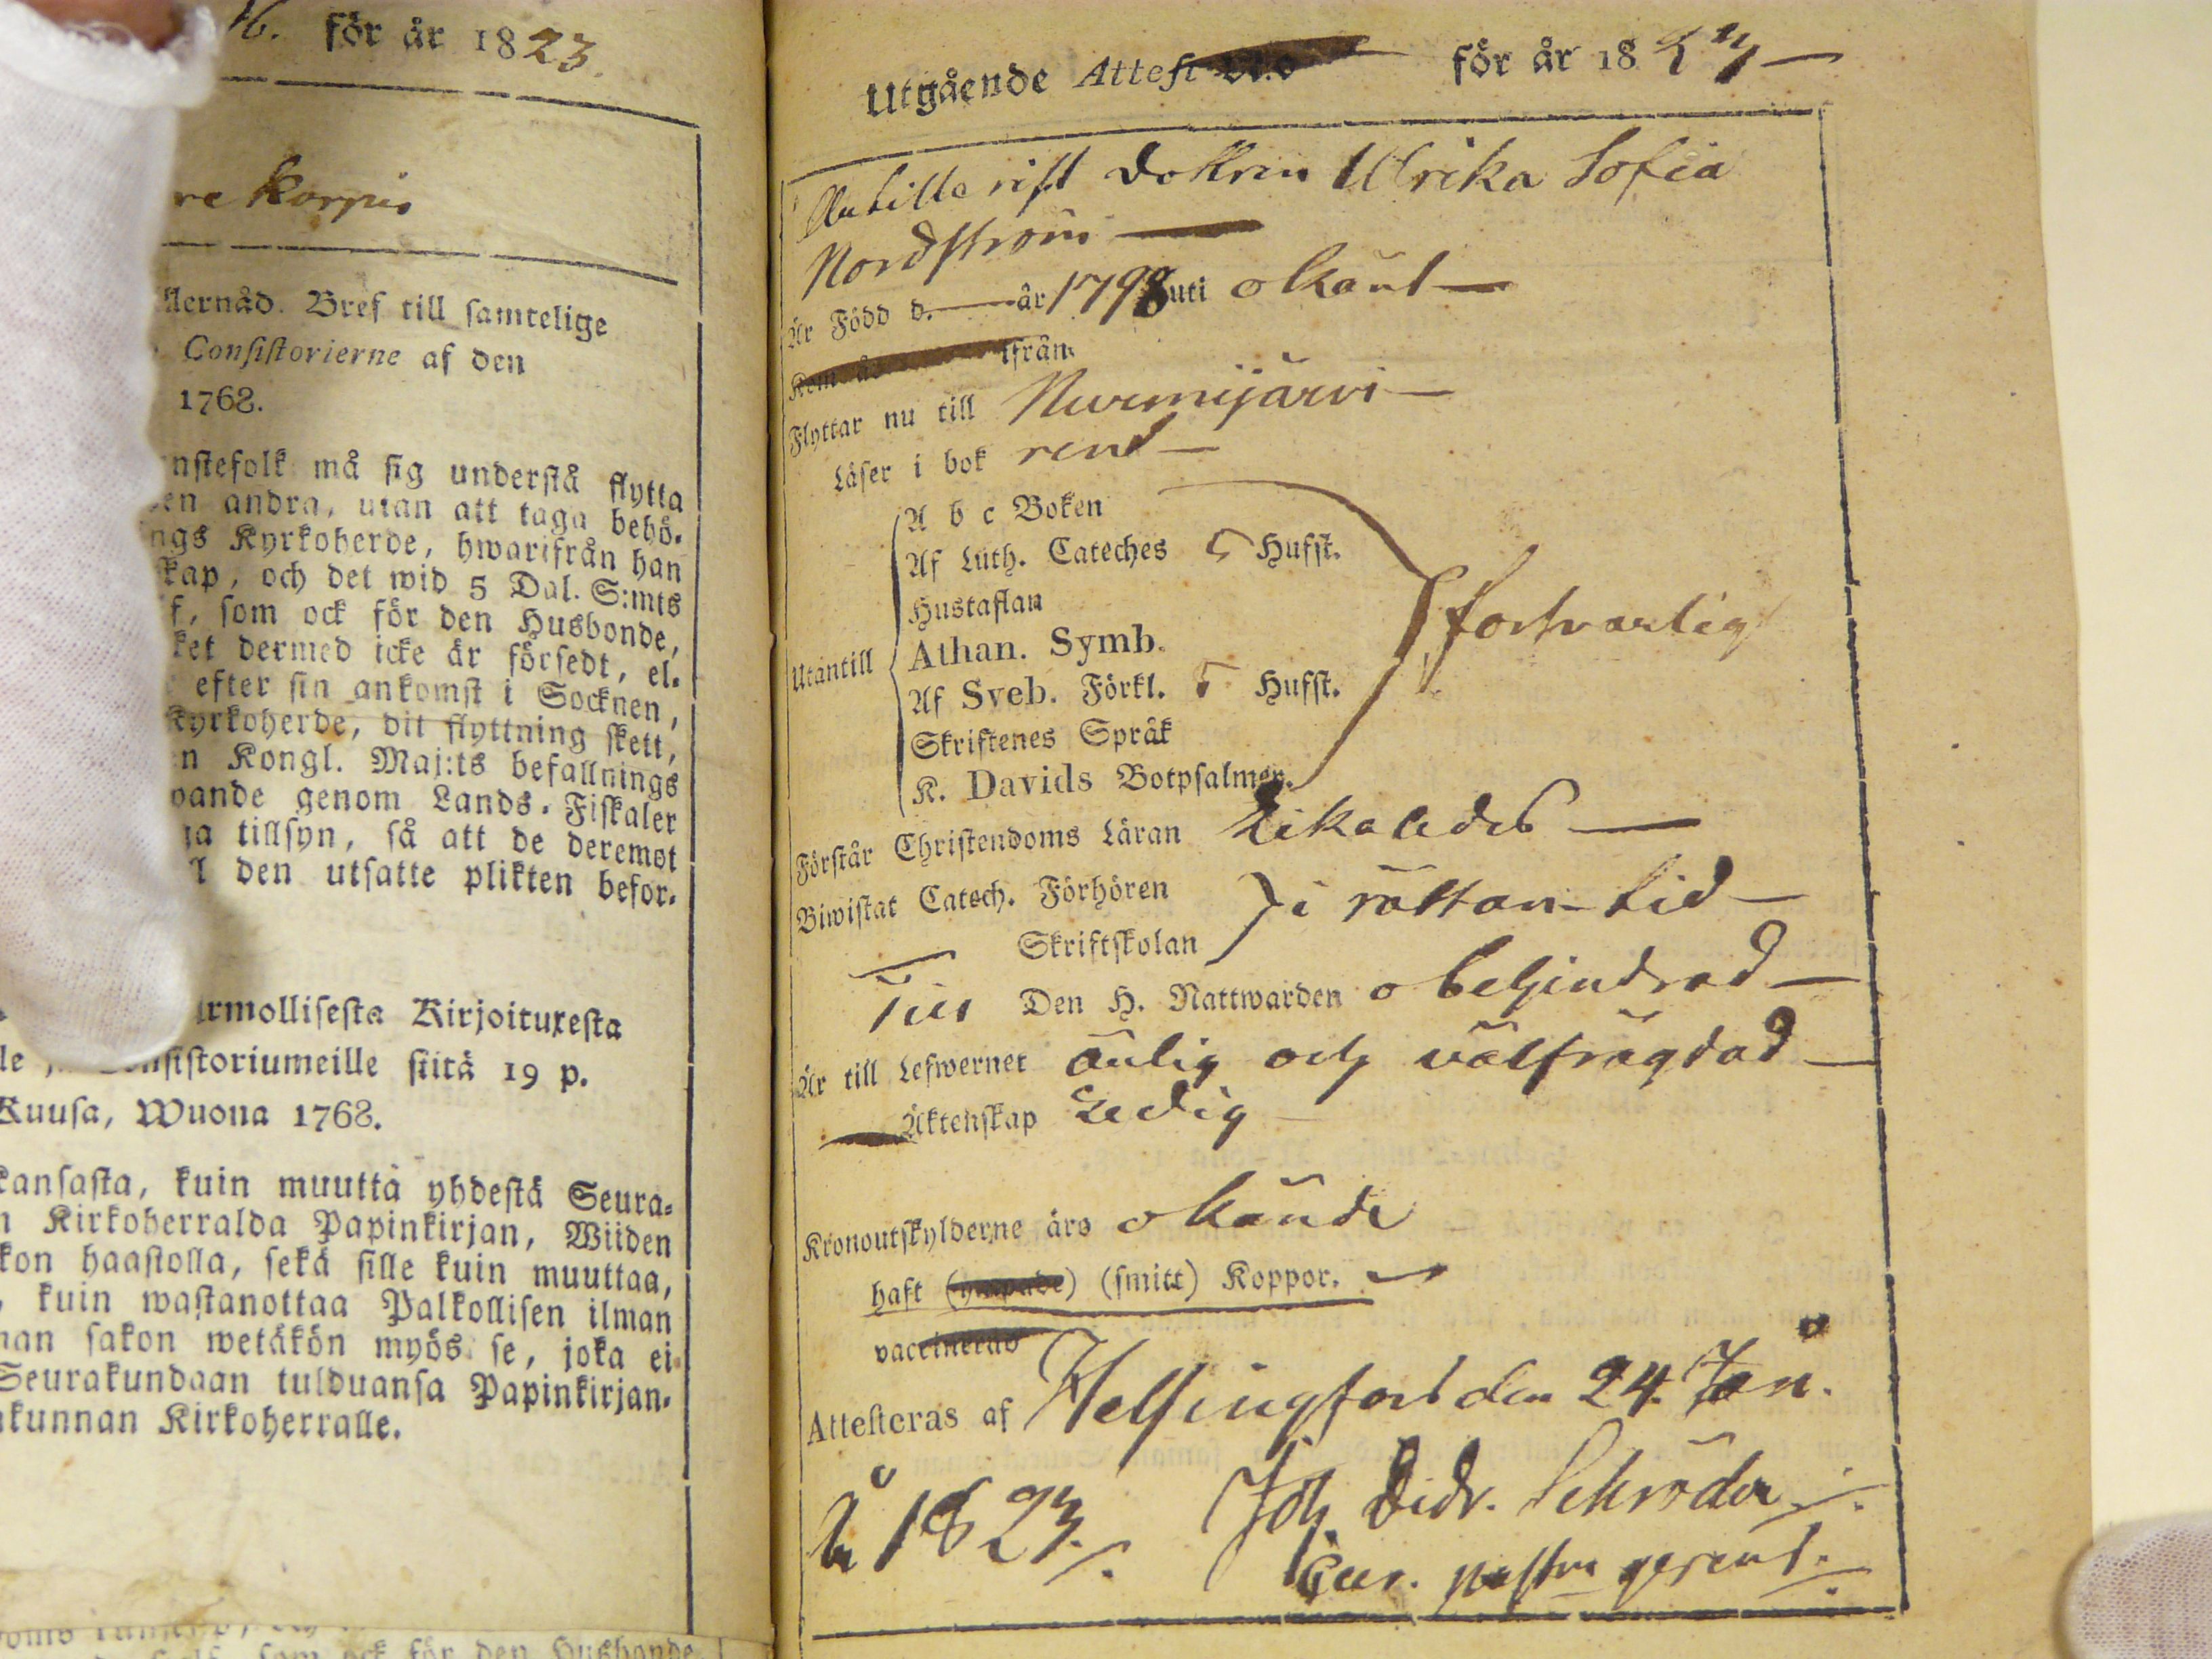 16. för år 1823.
re Korpis
llernåd. Bref till samtelige
Consistorierne af den
1768.
nstefolk må sig understå flytta
en andra, utan att taga behö-
ngs Kyrkoherde, hwarifrån han
skap, och det wid 5 Dal. S:mts
f, som ock för den Husbonde,
ket dermed icke är försedt, el-
efter sin ankomst i Socknen,
Kyrkoherde, dit flyttning skett,
n Kongl. Maj:ts befallnings
vande genom Lands-Fiskaler
na tillsyn, så att de deremot
ll den utsatte plikten befor-
rmollisesta Kirjoituxesta
nsistoriumeille siitä 19 p.
Kuusa, Wuona 1768.
kansasta, kuin muuttå yhdestä Seura-
n Kirkoherralda Papinkirjan, Wiiden
kon haastolla, sekä sille kuin muuttaa,
, kuin wastanottaa Palkollisen ilman
man sakon wetäkön myös se, joka ei
Seurakundaan tulduansa Papinkirjan-
kunnan Kirkoherralle.
som ock för den Husbonde
Utgående Attest No för år 1823
Artillerist dottren Ulrika Sofia
Nordström
Är Född d. år 1798 uti okänt
Kom åb ifrån
Flyttar nu till Nurmijärvi
Läser i bok rent
A b c Boken
Af Luth. Cateches 5 Hufst.
Hustaflan
Utantill Athan. Symb. försvarligt
Af Sveb. Förkl. 5 Hufst.
Skriftenes Språk
K. Davids Botpsalmer.
Förstår Christendoms Läran Likaledes
Biwistat Catech. Förhören i rättan tid
Skriftskolan
Till Den H. Nattwarden obehindrad
Är till Lefwernet ärlig och välfrägdad
Äktenskap Ledig
Kronoutskylderne äro okände
haft (ympade) (smitt) Koppor.
vaccinerad
Attesteras af Helsingfors den 24. Jan.
År 1823. Joh. Didr. Schröder
Cur. past. gerent.